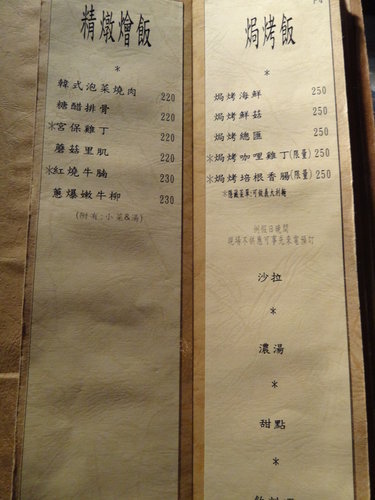 精燉燴飯
*
韓式泡菜燒肉 220
糖醋排骨 220
*宮保雞丁 220
蘑菇里肌 220
*紅燒牛腩 230
蔥爆嫩牛柳 230
(附有:小菜&湯)
焗烤飯
*
焗烤海鮮 250
焗烤鮮菇 250
焗烤總匯 250
*焗烤咖哩雞丁(限量) 250
*焗烤培根香腸(限量) 250
*隱藏菜單:可做義大利麵
例假日晚間
現場不供應可事先來電預訂
沙拉
*
濃湯
*
甜點
*